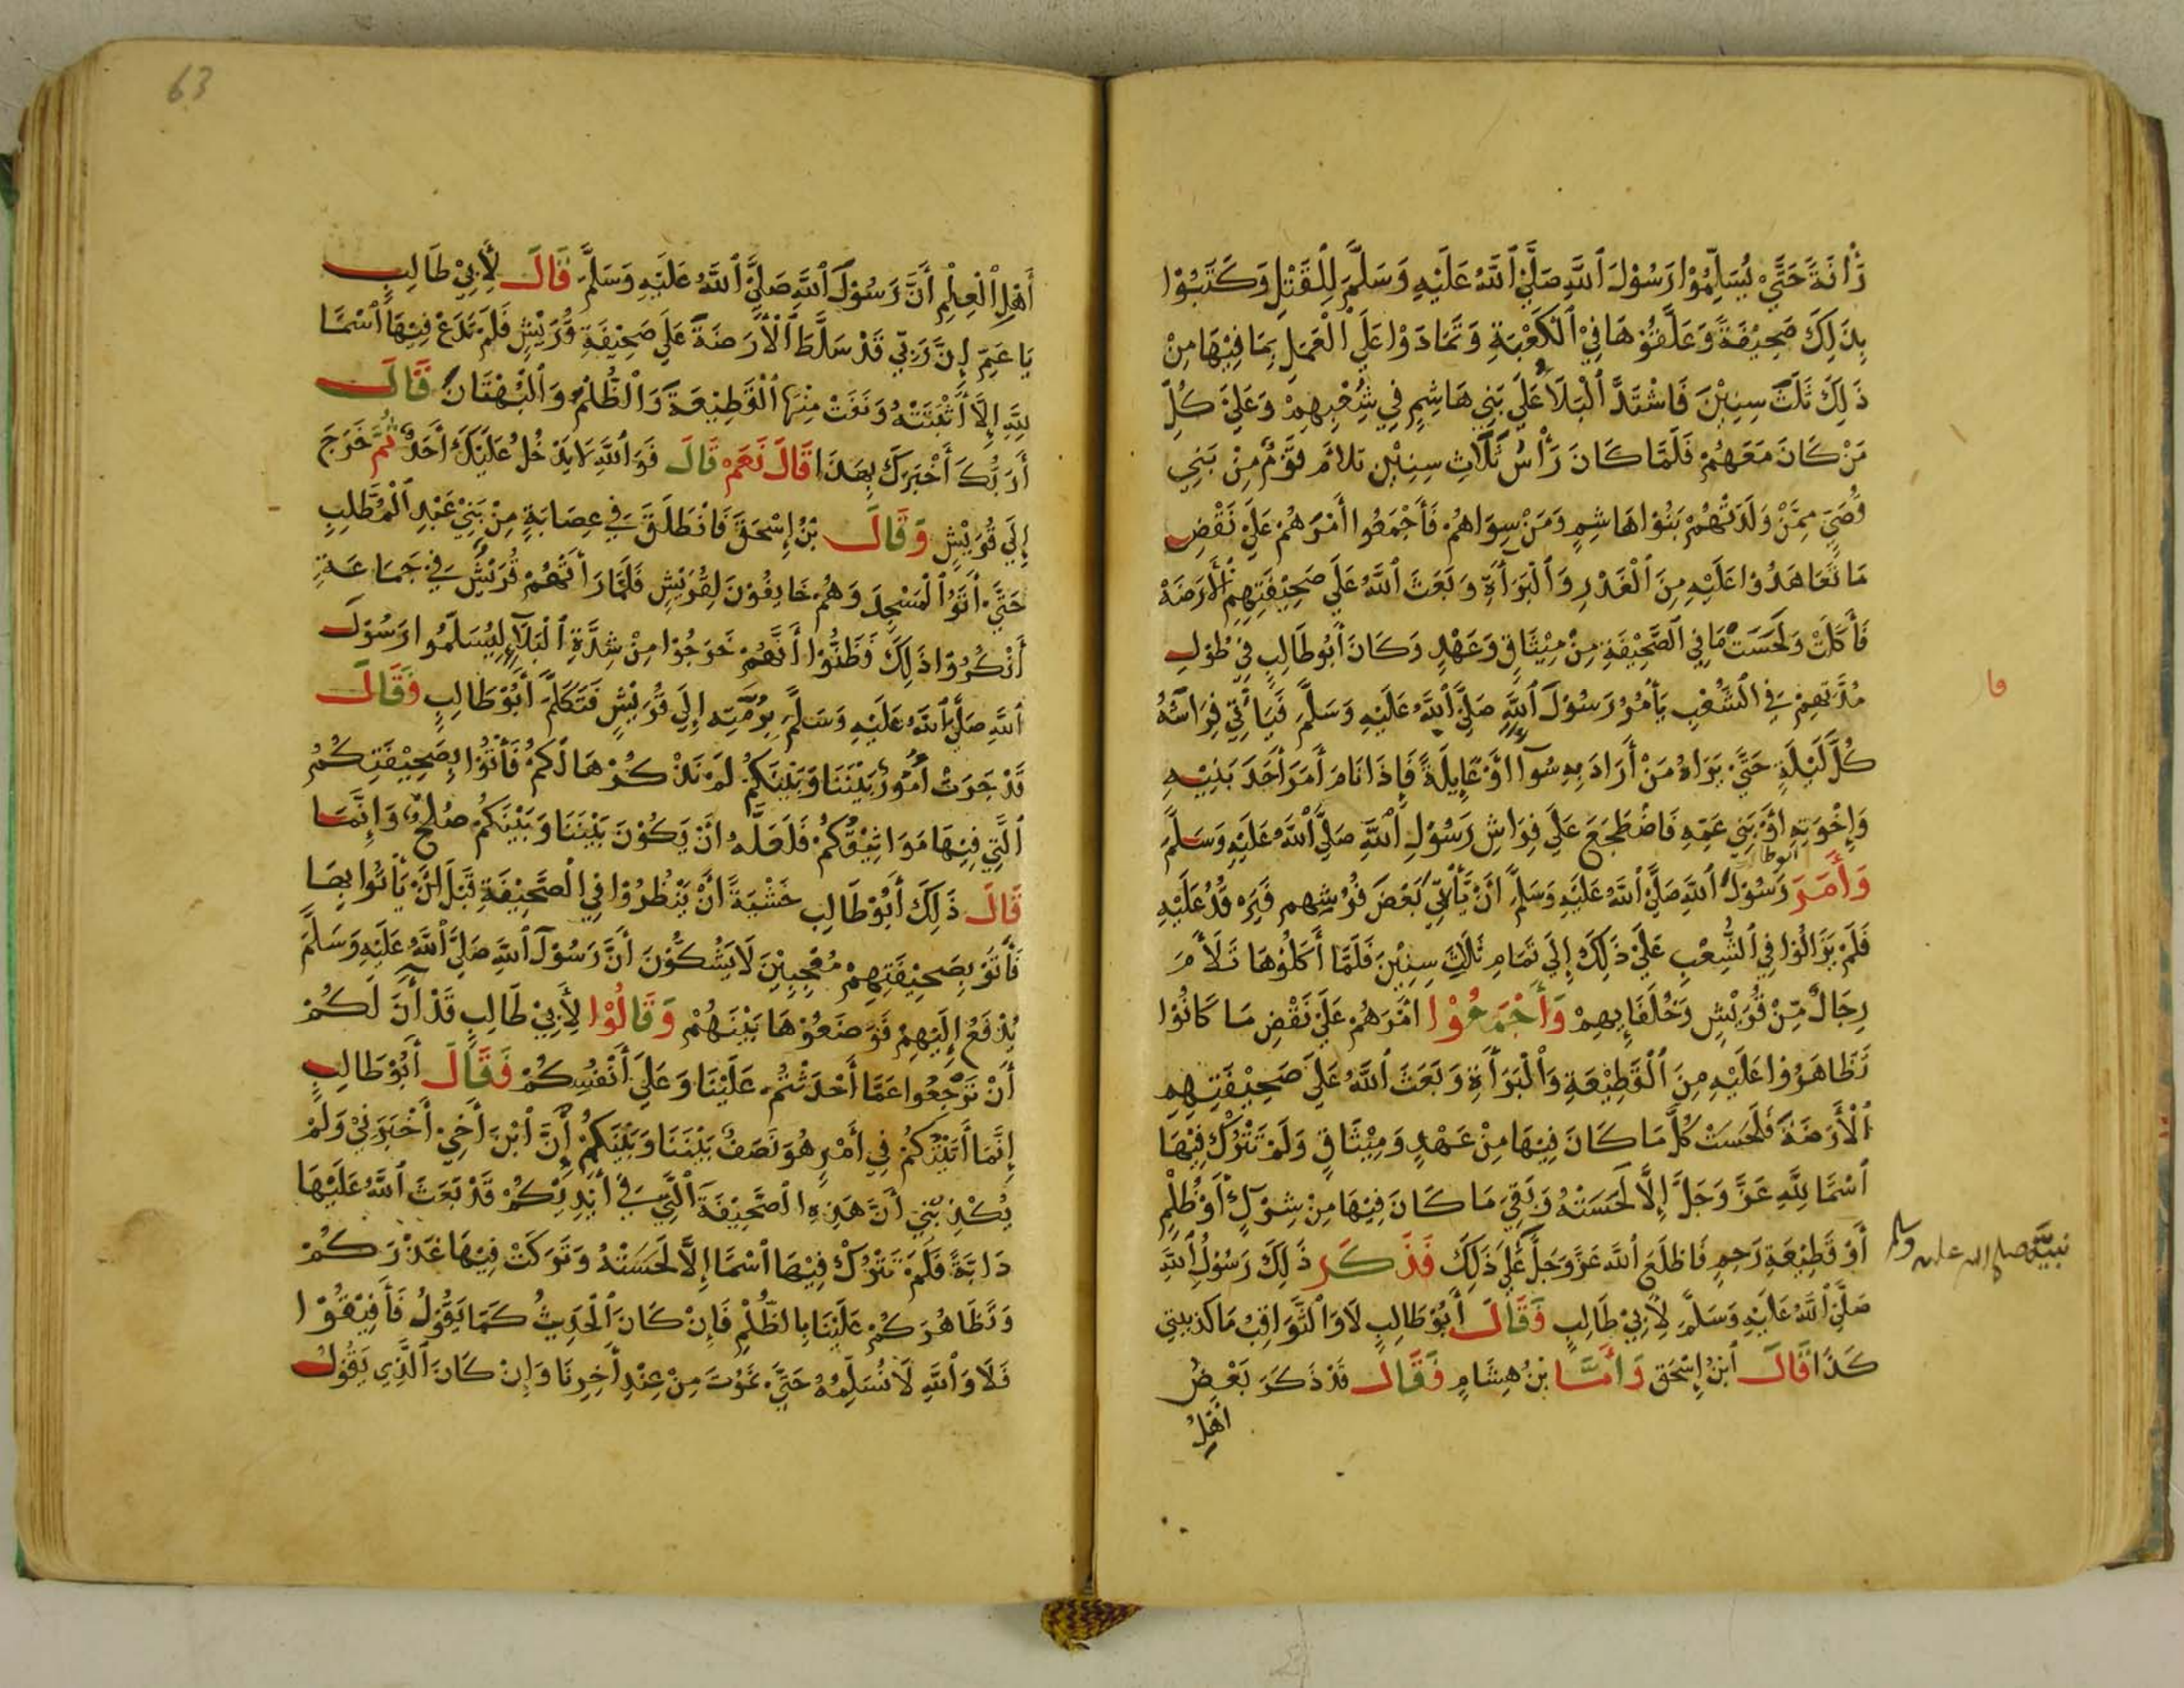 رَأْفَةً حَتَّىٰ يُسَلِّمُوْا رَسُوْلَ ٱللَّهِ صَلَّىٰ ٱللَّهُ عَلَيْهِ وَسَلَّمَ لِلْقَتْلِ وَكَتَبُوْا
بِذَلِكَ صَحِيْفَةً وَعَلَّقُوْهَا فِيْ ٱلْكَعْبَةِ وَتَمَادَوْا عَلَىٰ ٱلْعَمَلِ بِمَا فِيْهَا مِنْ
ذَلِكَ ثَلَثَ سِنِيْنَ فَاشْتَدَّ ٱلْبَلَاءُ عَلَىٰ بَنِي هَاشِمٍ فِي شِعْبِهِمْ وَعَلَىٰ كُلِّ
مَنْ كَانَ مَعَهُمْ فَلَمَّا كَانَ رَأْسُ ثَلَاثِ سِنِيْنَ تلاَمَ قَوْمٌ مِنْ بَنِي
قُصَيٍّ مِمَّنْ وَلَدَتْهُمْ بَنُوْا هَاشِمٍ وَمَنْ سِوَاهُمْ فَأَجْمَعُوا أَمْرَهُمْ عَلَىٰ نَقْضِ
مَا تَعَاهَدُوْا عَلَيْهِ مِنَ ٱلْغَدْرِ وَٱلْبَرَآءَةِ وَبَعَثَ ٱللَّهُ عَلَىٰ صَحِيْفَتِهِمْ ٱلْأَرَضَةَ
فَأَكَلَتْ وَلَحَسَتْ مَا فِي ٱلصَّحِيْفَةِ مِنْ مِيْثَاقٍ وَعَهْدٍ وَكَانَ أَبُوْ طَالِبٍ فِيْ طُوْلِ
مُدَّتِهِمْ فِي ٱلشِّعْبِ يَأْمُرُ رَسُوْلَ ٱللَّهِ صَلَّىٰ ٱللَّهُ عَلَيْهِ وَسَلَّمَ فَيَأْتِي فِرَاشَهُ
كُلَّ لَيْلَةٍ حَتَّىٰ يَرَاهُ مَنْ أَرَادَ بِهِ سُوْآ اَوْ غَايِلَةً فَإِذَا نَامَ أَمَرَ أَحَدَ بَنِيْهِ
وَإِخْوَتِهِ اَوْ بَنِي عَمِّهِ فَاضْطَجَعَ عَلَىٰ فِرَاشِ رَسُوْلِ ٱللَّهِ صَلَّىٰ ٱللَّهُ عَلَيْهِ وَسَلَّمَ
ابوطالب
وَأَمَرَ رَسُوْلَ ٱللَّهِ صَلَّىٰ ٱللَّهُ عَلَيْهِ وَسَلَّمَ اَنْ يَأْتِيَ بَعْضَ فُرُشِهِم فَيَرْقُدُ عَلَيْهِ
فَلَمْ يَزَالُوْا فِي ٱلشِّعْبِ عَلَىٰ ذَلِكَ إِلَىٰ تَمَامِ ثَلَاثِ سِنِيْنَ فَلَمَّا أَكَلُوْهَا تَلَأَمَ
رِجَالٌ مِّنْ قُرَيْشٍ وَحُلَفَايِهِمْ وَأَجْمَعُوْا اَمْرَهُمْ عَلَىٰ نَقْضِ مَا كَانُوْا
تَظَاهَرُوْا عَلَيْهِ مِنَ ٱلْقَطِيْعَةِ وَٱلْبَرَأَةِ وَبَعَثَ ٱللَّهُ عَلَىٰ صَحِيْفَتِهِمِ
ٱلْأَرَضَةَ فَلَحَسَتْ كُلَّمَا كَانَ فِيْهَا مِنْ عَهْدٍ وَمِيْثَاقٍ وَلَمْ تَتْرُكْ فِيْهَا
ٱسْمًا لِلَّهِ عَزَّ وَجَلَّ إِلَّا لَحَسَتْهُ وَبَقِيَ مَا كَانَ فِيْهَا مِنْ شِرْكٍ أَوْ ظُلْمٍ
أَوْ قَطِيْعَةِ رَحِمٍ فَاطْلَعَ ٱللَّهُ عَزَّ وَجَلَّ عَلَىٰ ذَلِكَ فَذَكَرَ ذَلِكَ رَسُوْلُ ٱللَّهِ
نبيَّه صلى الله عليه وسلم
صَلَّىٰ ٱللَّهُ عَلَيْهِ وَسَلَّمَ لِأَبِيْ طَالِبٍ فَقَالَ أَبُوْ طَالِبٍ لَا وَالثَّوَاقِبِ مَا كَذبيتي
كَذَا قَالَ ٱبْنُ إِسْحَق وَأَمَّا بْنُ هِشَامٍ فَقَالَ قَدْ ذَكَرَ بَعْضُ
اَهْلِ
63
أَهْلِ ٱلْعِلْمِ أَنَّ رَسُوْلَ ٱللَّهِ صَلَّىٰ ٱللَّهُ عَلَيْهِ وَسَلَّمَ قَالَ لِأَبِيْ طَالِبٍ
يَا عَمِّ إِنَّ رَبِّي قَدْ سَلَّطَ ٱلْأَرَضَةَ عَلَىٰ صَحِيْفَةِ قُرَيْشٍ فَلَمْ تَدَعْ فِيْهَا ٱسْمًا
لِلَّهِ إِلَّا أَثْبَتَتْهُ وَنَفَتْ مِنْهَا ٱلْقَطِيْعَةَ وَٱلظُّلْمَ وَٱلْبُهْتَانَ قَالَ
أَرَبُّكَ أَخْبَرَكَ بِهَذَا قَالَ نَعَمْ قَالَ فَوَٱللَّهِ لَا يَدْخُلُ عَلَيْكَ أَحَدٌ ثُمَّ خَرَجَ
إِلَىٰ قُرَيْشٍ وَقَالَ بْنُ إِسْحَقَ فَانْطَلَقَ فِي عِصَابَةٍ مِنْ بَنِيْ عَبْدِ ٱلْمُطَّلِبِ
حَتَّىٰ أَتَوُا ٱلْمَسْجِدَ وَهُمْ خَايِفُوْنَ لِقُرَيْشٍ فَلَمَّا رَأَتْهُمْ قُرَيْشٌ فِي جَمَاعَةٍ
أَنْكَرُوْا ذَلِكَ فَظَنُّوْا أَنَّهُمْ خَرَجُوْا مِنْ شِدَّةِ ٱلْبَلَآءِ لِيُسَلِّمُوا رَسُوْلَ
ٱللَّهِ صَلَّىٰ ٱللَّهُ عَلَيْهِ وَسَلَّمَ بِرُمَّتِهِ إِلَىٰ قُرَيْشٍ فَتَكَلَّمَ أَبُوْ طَالِبٍ فَقَالَ
قَدْ جَرَتْ أُمُوْرٌ بَيْنَنَا وَبَيْنَكُمْ لَمْ نَذْكُرْهَا لَكُمْ فَأْتُوْا بِصَحِيْفَتِكُمُ
ٱلَّتِي فِيْهَا مَوَاثِيْقُكُمْ فَلَعَلَّهُ اَنْ يَكُوْنَ بَيْنَنَا وَبَيْنَكُمْ صُلْحٌ وَإِنَّمَا
قَالَ ذَلِكَ أَبُوْ طَالِبٍ خَشْيَةً اَنْ يَنْظُرُوْا فِي ٱلصَّحِيْفَةِ قَبْلَ اَنْ يَأْتُوا بِهَا
فَأَتَوْ بِصَحِيْفَتِهِمْ مُعْجِبِيْنَ لَا يَشُكُّوْنَ أَنَّ رَسُوْلَ ٱللَّهِ صَلَّىٰ ٱللَّهُ عَلَيْهِ وَسَلَّمَ
يُدْفَعُ إِلَيْهِمْ فَوَضَعُوْهَا بَيْنَهُمْ وَقَالُوْا لِأَبِيْ طَالِبٍ قَدْ آنَ لَكُمْ
أَنْ تَرْجِعُوا عَمَّا أَحْدَثْتُمْ عَلَيْنَا وَعَلَىٰ أَنْفُسِكُمْ فَقَالَ أَبُوْ طَالِبٍ
إِنَّمَا أَتَيْتُكُمْ فِي أَمْرٍ هُوَ نَصَفٌ بَيْنَنَا وَبَيْنَكُمْ إِنَّ ٱبْنَ أَخِيْ أَخْبَرَنِيْ وَلَمْ
يَكْذِبْنِيْ أَنَّ هَذِهِ ٱلصَّحِيْفَةَ ٱلَّتِيْ فِي أَيْدِيْكُمْ قَدْ بَعَثَ ٱللَّهُ عَلَيْهَا
دَابَّةً فَلَمْ تَتْرُكْ فِيْهَا ٱسْمًا إِلَّا لَحَسَتْهُ وَتَرَكَتْ فِيْهَا غَدْرَكُمْ
وَتَظَاهُرَكُمْ عَلَيْنَا بِالظُّلْمِ فَإِنْ كَانَ ٱلْحَدِيثُ كَمَا يَقُوْلُ فَأَفِيْقُوْا
فَلَا وَٱللَّهِ لَا نُسَلِّمُهُ حَتَّىٰ نَمُوْتَ مِنْ عِنْدِ آخِرِنَا وَإِنْ كَانَ ٱلَّذِي يَقُوْلُ